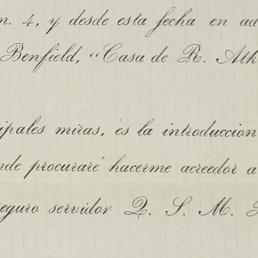 n. 4, y desde esta fecha en ad
Benfield, "Casa de R. Atk
ipales miras, es la introduccion
nde procuraré hacerme acreedor a
eguro servidor Q. S. M.